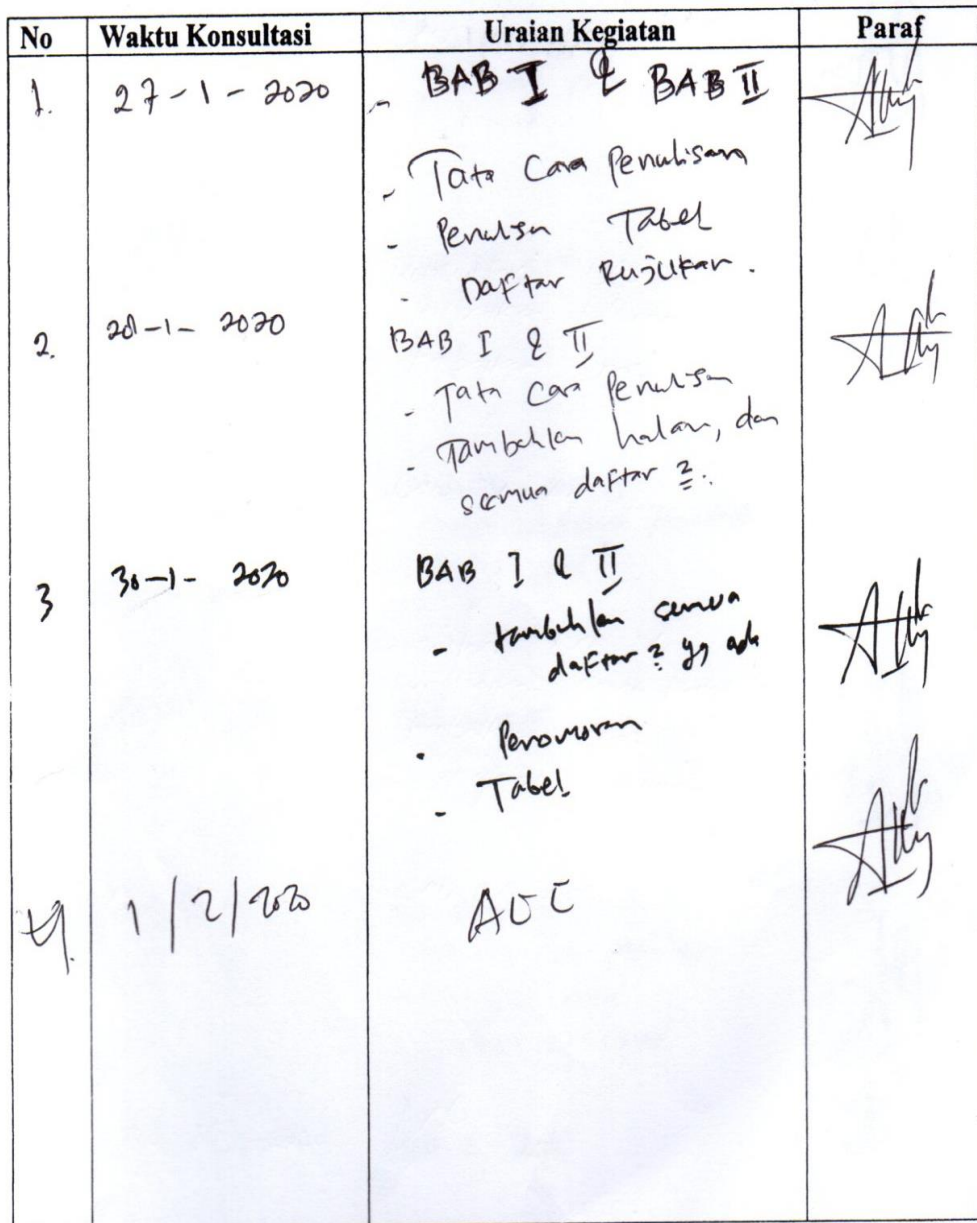 No Waktu Konsultasi Uraian Kegiatan Paraf
1. 27-1-2020 - BAB I & BAB II
- Tata Cara Penulisan
- Penulisan Tabel
- Daftar Rujukan.
2. 2020 BAB I & II
- Tata Cara Penulisan
- Tambahkan halam, dan
semua daftar 2.
3 30-1-2020 BAB I & II
- tambahkan semua
daftar 2 yg ada
- Penomoran
- Tabel
4. 1/2/2020 ACC